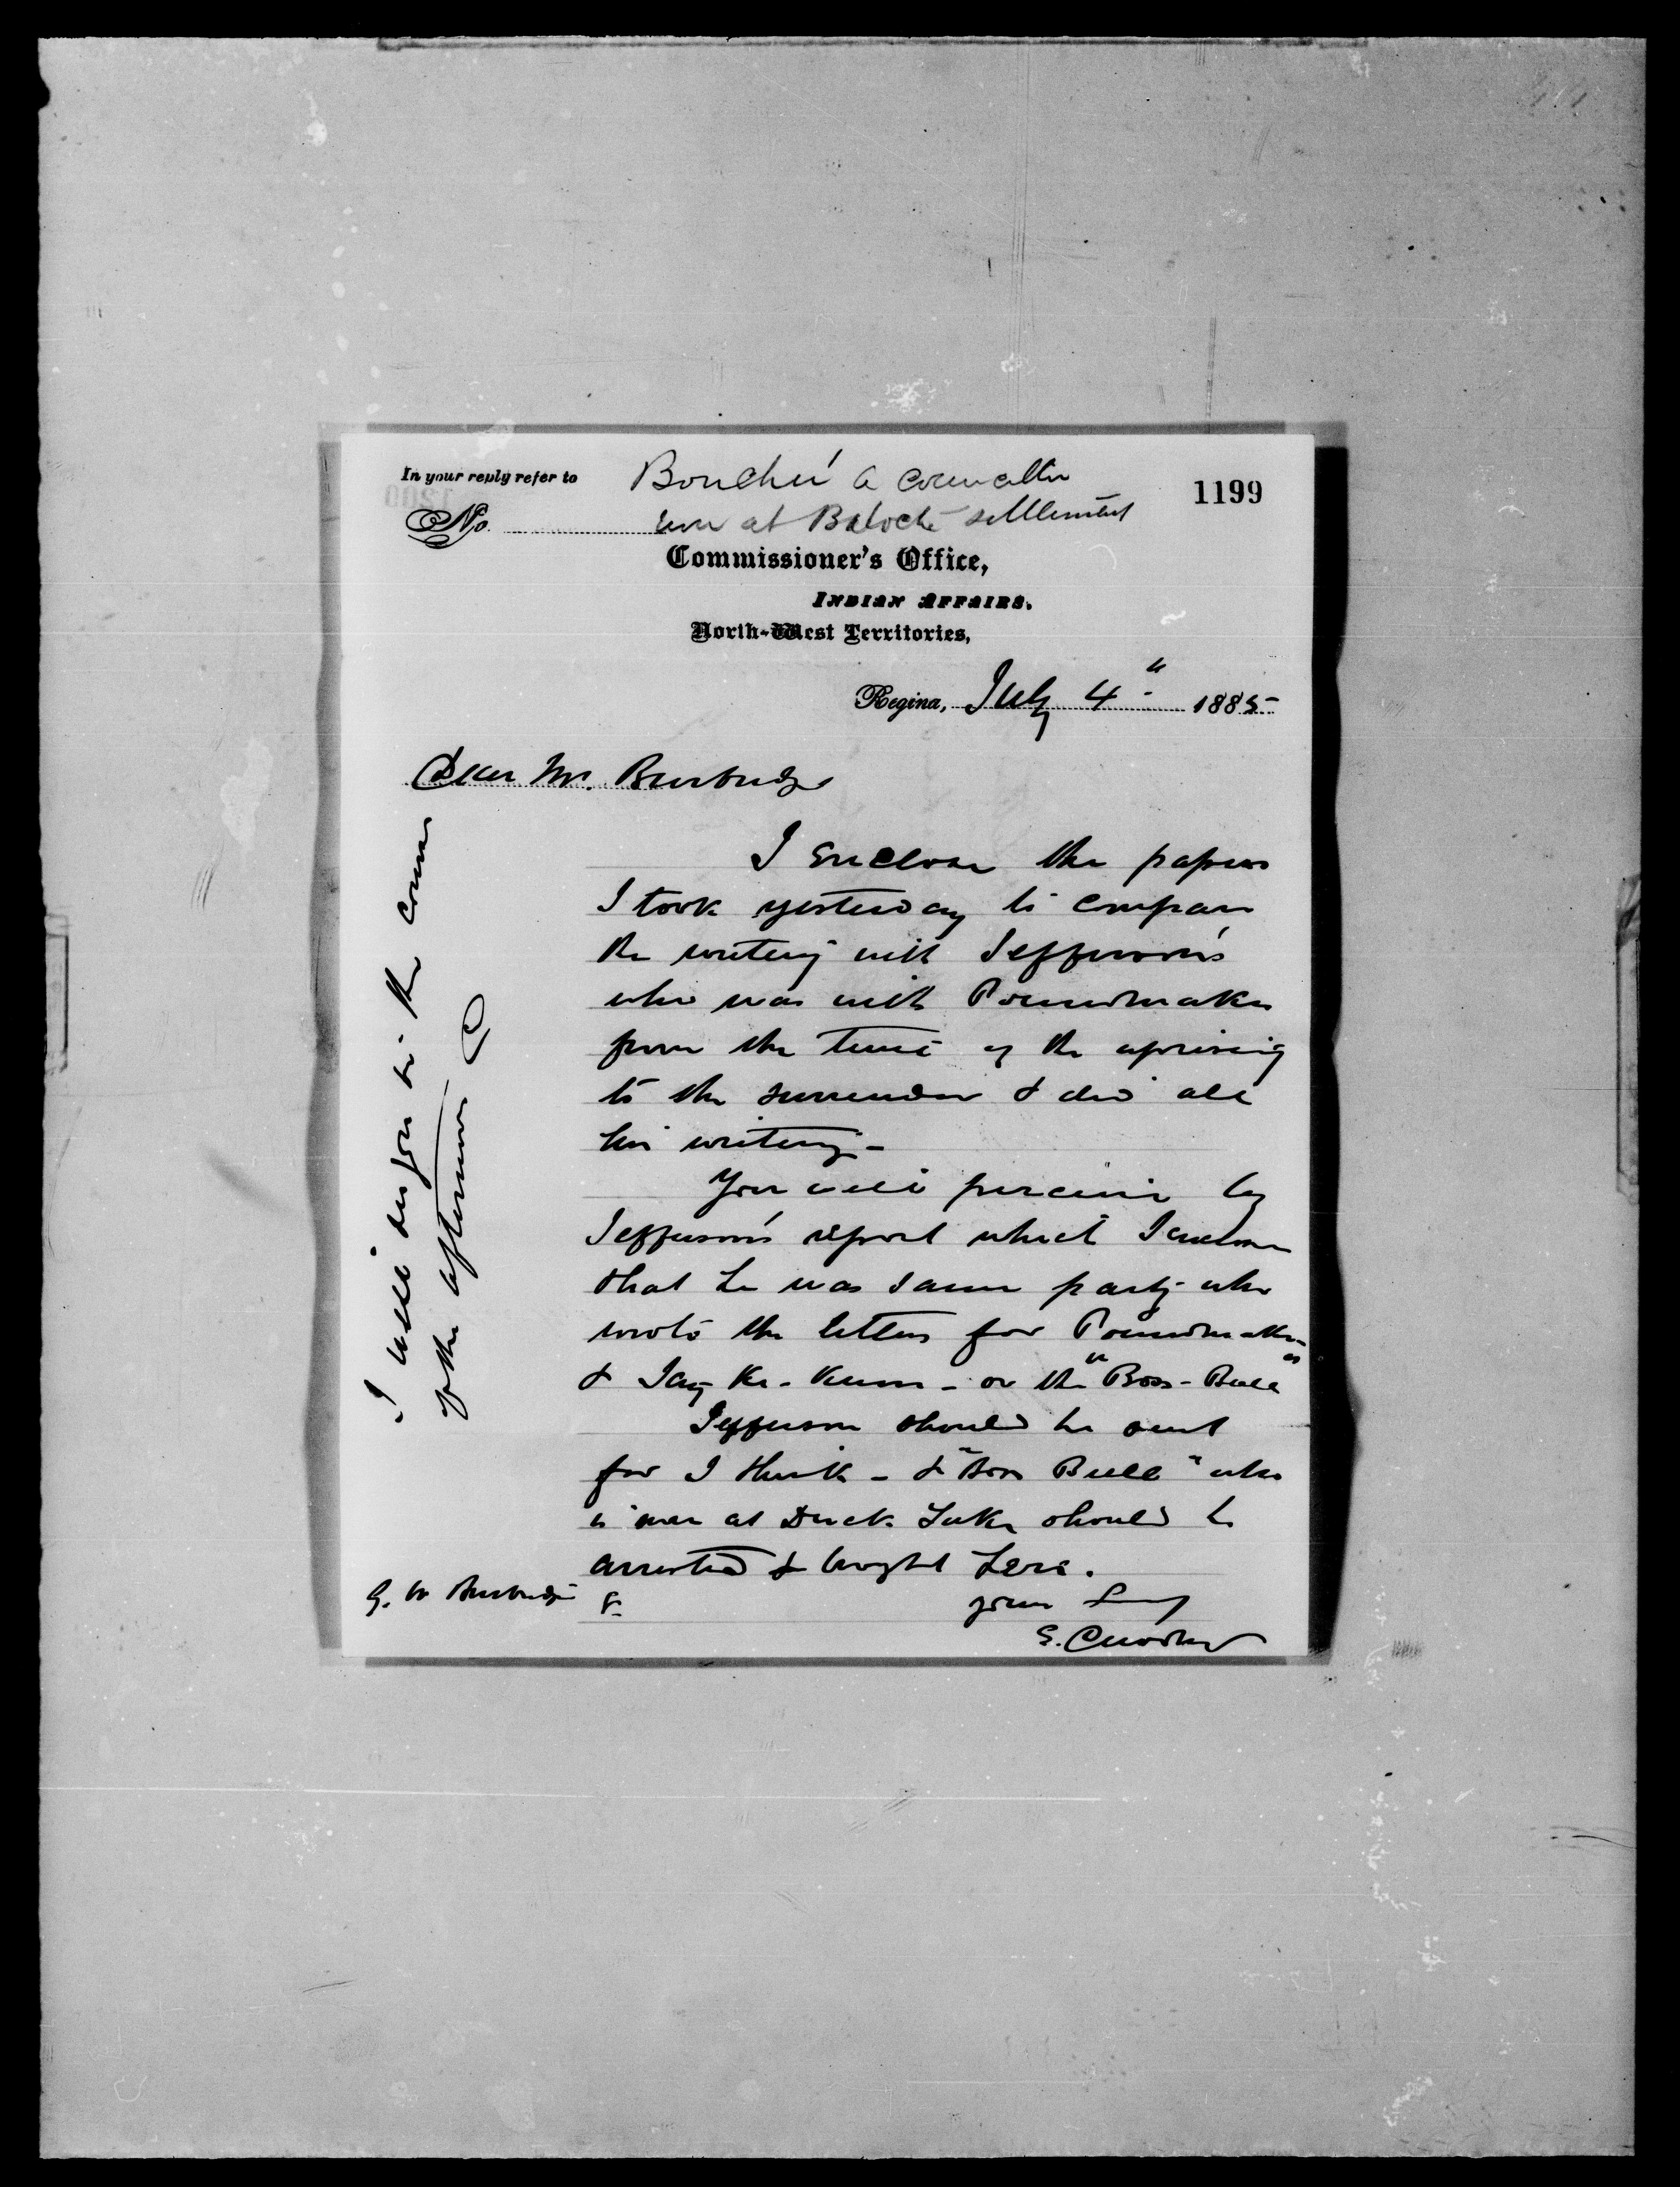 In your reply refer to
Bouché a councillor
1199
No. at Batoche settlement
Commissioner's Office,
INDIAN AFFAIRS.
North-West Territories,
Regina, July 4th 1885
Dear Mr. Burbidge
I enclose the papers
I took yesterday to compare
the writing with Jefferson's
who was with Poundmaker
from the time of the uprising
to the surrender & did all
his writing -
You will perceive by
Jefferson's report which I enclose
that he was same party who
wrote the letters for Poundmaker
& - or the "Boss-Bull"
Jefferson should be sent
for I think - & "Boss Bull" who
is now at Duck Lake should be
arrested & brought here.
G. W Burbidge
yours
E. Dewdney
I will see you in the course
of the afternoon